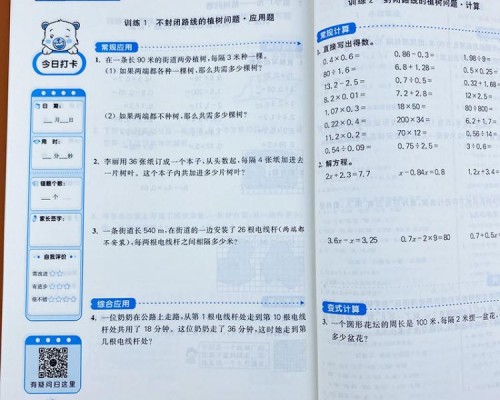 训练 1 不封闭路线的植树问题·应用题
今日打卡
日 期:
月 日
用 时:
分 秒
错题个数:
个
家长签字:
自我评价
需改进 ☆
有进步 ☆☆
很不错 ☆☆☆
有疑问扫这里
常规应用
1. 在一条长 90 米的街道两旁植树,每隔 3 米种一棵。
(1) 如果两端都各种一棵,那么共需多少棵树?
(2) 如果两端都不种树,那么共需多少棵树?
2. 李丽用 36 张纸订成一个本子,从头数起,每隔 4 张纸加进去
一片树叶。这个本子内共加进多少片树叶?
3. 一条街道长 540 m,在街道的一边安装了 26 根电线杆(两端都
不安装),每两根电线杆之间相隔多少米?
综合应用
4. 一位奶奶在公路上走路,从第 1 根电线杆处走到第 10 根电线
杆处共用了 18 分钟。这位奶奶走了 36 分钟,这时她走到第
几根电线杆处?
训练 2 不封闭路线的植树问题·计算
常规计算
1. 直接写出得数。
0.4×0.6= 0.86-0.3= 1.98÷9=
80÷1.6= 6.8+1.28= 0.5×0.25=
13.2-2.5= 0.7÷0.5= 0.32+1.68
8.2×0.01= 7.2+2.8= 12×2.5=
1.07×0.3= 18×50= 80÷800=
0.22×0.4= 200×34= 6.2+1.7=
11.2×0.2= 70×12= 0.56÷14=
0.54÷0.09= 0.75÷2.5= 3÷0.6=
2. 解方程。
2x+2.3=7.7 x-0.84x=0.8 1.2x+3.4=
3.6x-x=3.25 0.7x-2×9=80 0.7+0.5x
变式计算
3. 一个圆形花坛的周长是 100 米,每隔 2 米摆一盆花,
多少盆花?